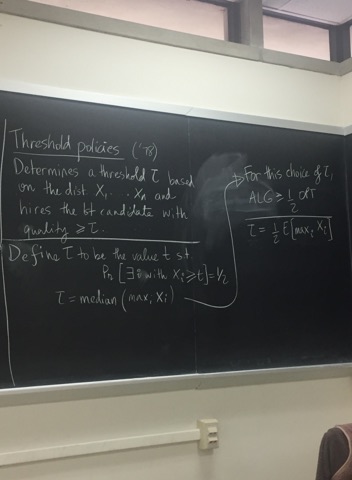 Threshold policies ('78)
Determines a threshold τ based
on the dist X₁ ... Xₙ and
hires the 1st candidate with
quality ≥ τ.
Define τ to be the value t st
Pr [∃ i with Xᵢ ≥ t] = 1/2
τ = median (maxᵢ Xᵢ)
For this choice of τ,
ALG ≥ 1/2 OPT
τ = 1/2 E[maxᵢ Xᵢ]